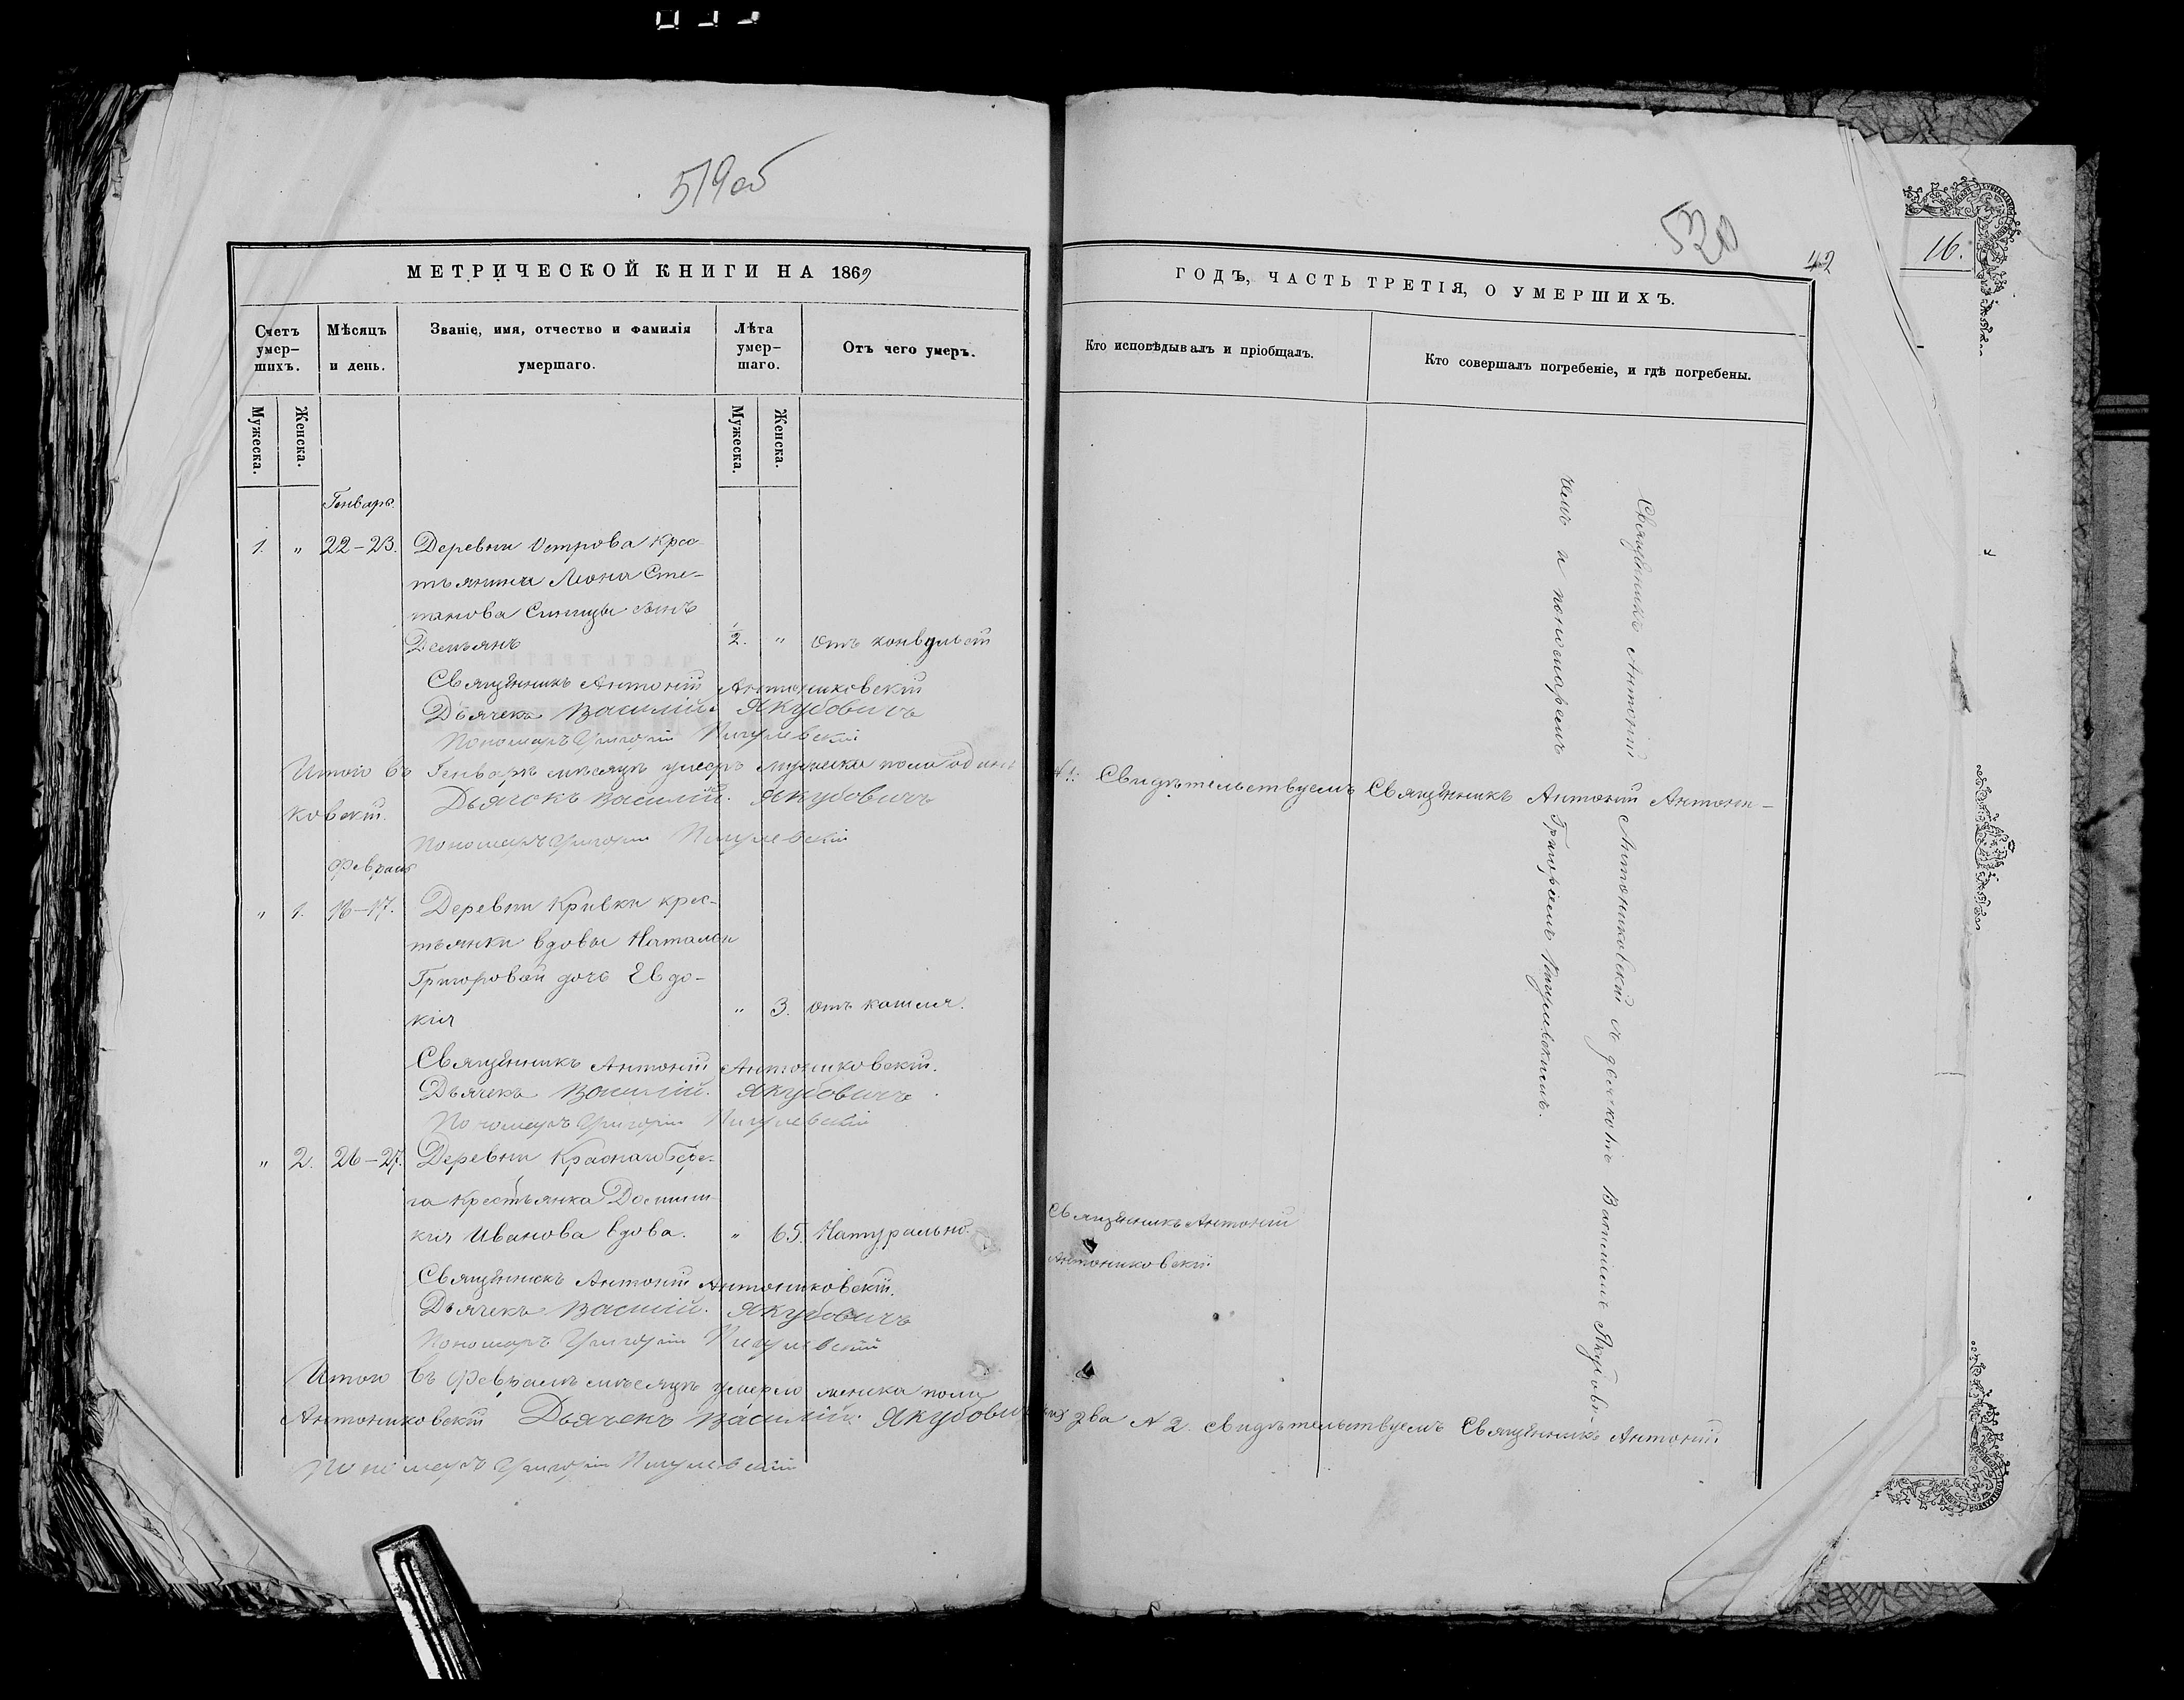 519об
МЕТРИЧЕСКОЙ КНИГИ НА 1869
Счетъ умер-шихъ.
Мѣсяцъ и день.
Званіе, имя, отчество и фамилія умершаго.
Лѣта умер-шаго.
Отъ чего умеръ.
Мужеска.
Женска.
Мужеска.
Женска.
Генварь.
1. " 22–23. Деревни Острова крес-
тьянина Леона Сте-
панова Синицы сынъ
Демьянъ 1/2. " отъ конвульсій
Священникъ Антоній Антониковскій
Дьячекъ Василій Якубовичъ
Пономарь Григорій Пигулевскій
Итого въ Генварѣ мѣсяцѣ умеръ мужеска пола одинъ
ковскій. Дьячокъ Василій. Якубовичъ
Пономарь Григорій Пигулевскій
Февраль
" 1. 16–17. Деревни Кривки крес-
тьянки вдовы Натальи
Григоровой дочь Евдо-
кія " 3. отъ кашля.
Священникъ Антоній Антониковскій.
Дьячекъ Василій. Якубовичъ
Пономарь Григорій Пигулевскій
" 2. 26–27. Деревни Краснаго Бере-
га крестьянка
Иванова вдова. " 65. Натурально.
Священникъ Антоній Антониковскій.
Дьячекъ Василій. Якубовичъ
Пономарь Григорій Пигулевскій
Итого въ Февралѣ мѣсяцѣ умерло женска пола
Антониковскій Дьячекъ Василій. Якубовичъ
Пономарь Григорій Пигулевскій
520
42
16.
ГОДЪ, ЧАСТЬ ТРЕТІЯ, О УМЕРШИХЪ.
Кто исповѣдывалъ и пріобщалъ.
Кто совершалъ погребеніе, и гдѣ погребены.
№ 1. Свидѣтельствуемъ Священникъ Антоній Антони-
Священникъ Антоній
Антониковскій
два № 2. свидѣтельствуемъ Священникъ Антоній
Священникъ Антоній Антониковскій съ дьячкомъ Василіемъ Якубови-
чемъ и пономаремъ Григоріемъ Пигулевскимъ.